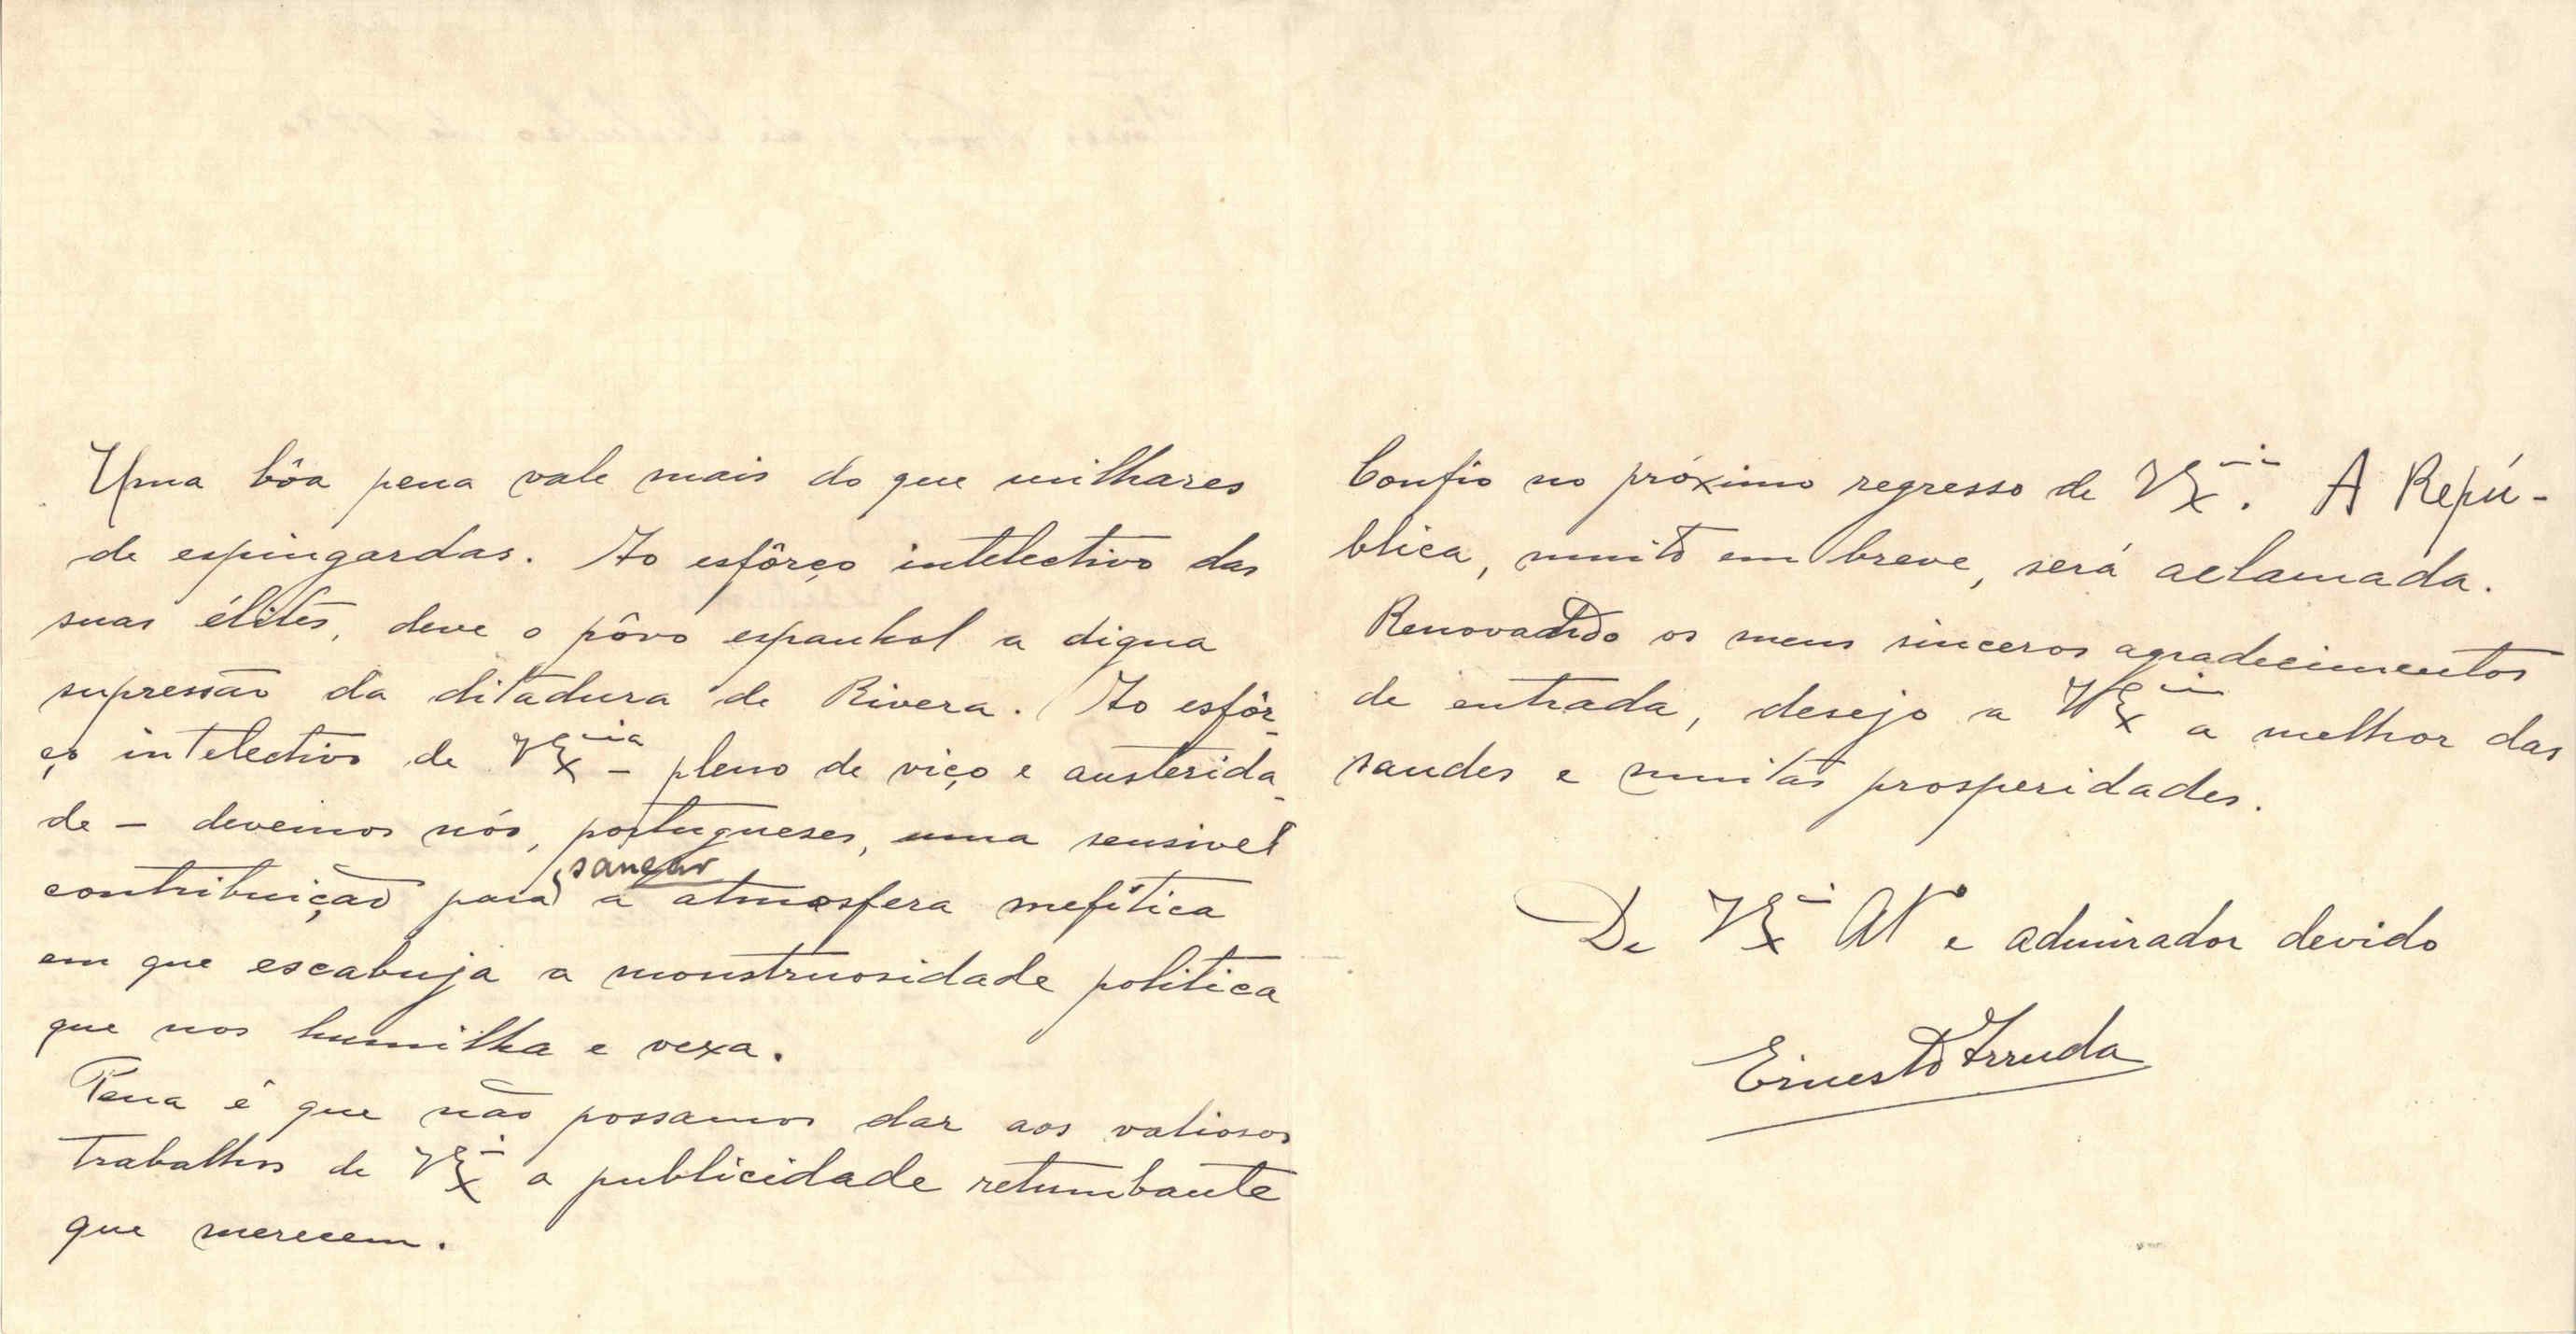 Uma bôa pena vale mais do que milhares
de espingardas. Ao esfôrço intelectivo das
suas élites, deve o pôvo espanhol a digna
supressão da ditadura de Rivera. Ao esfôr-
ço intelectivo de V. Ex.cia - pleno de viço e austerida-
de - devemos nós, portugueses, uma sensivel
contribuição para sanear a atmosfera mefítica
em que escabuja a monstruosidade politica
que nos humilha e vexa.
Pena é que não possamos dar aos valiosos
trabalhos de V. Ex.ª a publicidade retumbante
que merecem.
Confio no próximo regresso de V. Ex.ª. A Repú-
blica, muito em breve, será aclamada.
Renovando os meus sinceros agradecimentos
de entrada, desejo a V. Ex.ª a melhor das
saudes e muitas prosperidades.
De V. Ex.ª Atº e admirador devido
Ernesto Arruda